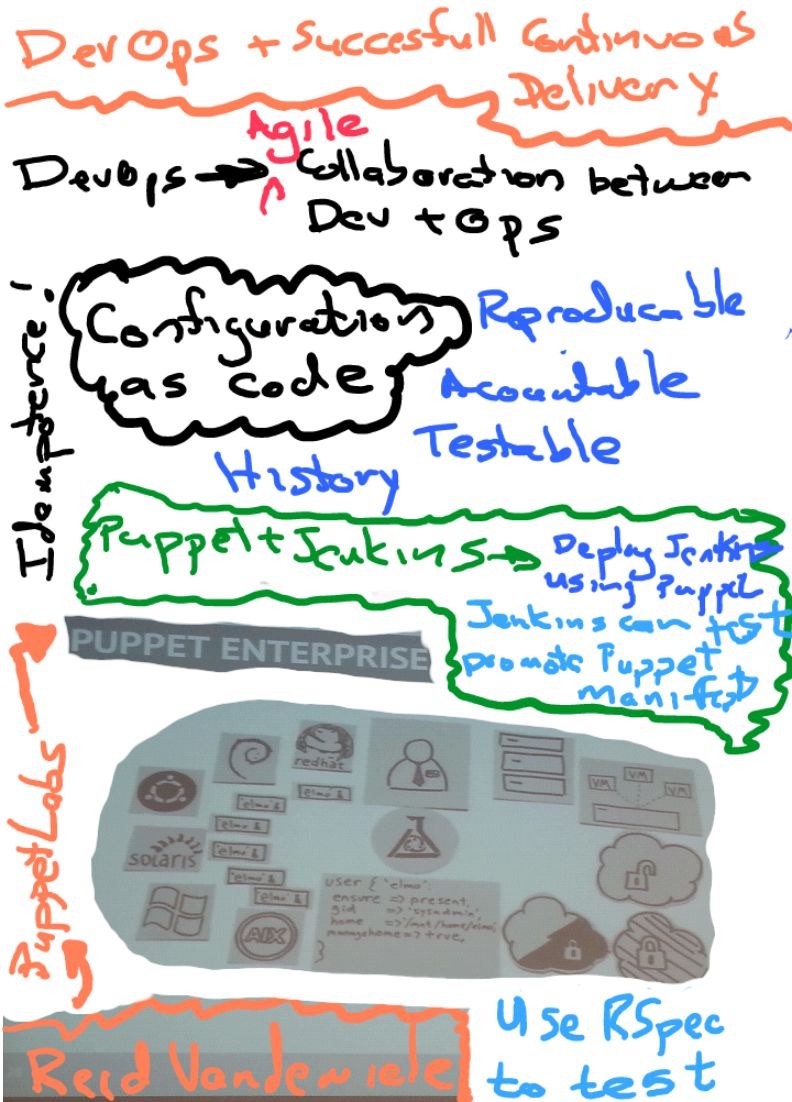 DevOps + Succesfull Continuous
Delivery
Agile
DevOps → Collaboration between
Dev + Ops
Idempotence!
Configuration
as code
Reproducable
Acountable
Testable
History
Puppet + Jenkins → Deploy Jenkins
using Puppet
Jenkins can test
promote Puppet
Manifest
PUPPET ENTERPRISE
PuppetLabs
redhat
'elmo' &
'elmo' &
'elmo' &
'elmo' &
'elmo' &
'elmo' &
SOLARIS
AIX
VM
VM
VM
user { 'elmo':
ensure => present,
gid => 'sysadmin',
home => '/mnt/home/elmo',
managehome => true,
}
Reid Vandewiele
Use RSpec
to test